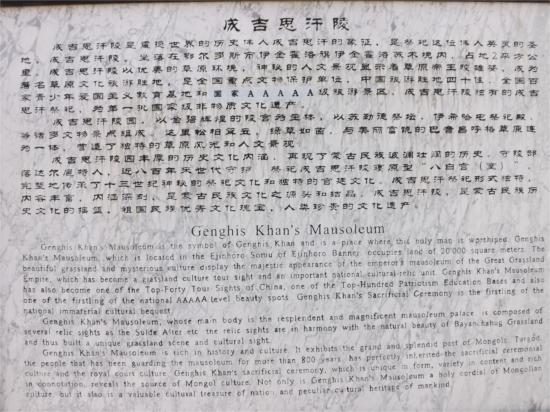 成吉思汗陵
成吉思汗陵是震撼世界的历史伟人成吉思汗的象征，是祭祀这位伟人英灵的圣
地。成吉思汗陵，坐落在鄂尔多斯市伊金霍洛旗伊金霍洛苏木境内，占地2平方公
里。成吉思汗陵以优美的草原环境，神秘的人文景观显示着草原帝王陵雄姿，成为
著名草原文化旅游胜地，是全国重点文物保护单位，中国旅游胜地四十佳，全国百
家青少年爱国主义教育基地和国家AAAAA级旅游景区，成吉思汗陵独有的成吉
思汗祭祀，为第一批国家级非物质文化遗产。
成吉思汗陵园，以金碧辉煌的陵宫为主体，以苏勒德祭坛，伊希哈屯祭祀殿
等诸多文物景点组成。这里松柏耸立，绿草如茵，与美丽富饶的巴音昌呼格草原连
为一体，营造了独特的草原风光和人文景观。
成吉思汗陵园丰厚的历史文化内涵，再现了蒙古民族波澜壮阔的历史，守陵部
落达尔扈特人，近八百年来世代守护、祭祀成吉思汗陵寝原型“八白宫（室）”，
完整地传承了十三世纪神秘的祭祀文化和独特的宫廷文化。成吉思汗祭祀形式独特，
内容丰富，内涵深刻，是蒙古民族文化之源头和结晶。成吉思汗陵，是蒙古民族历
史文化的摇篮，祖国民族优秀文化瑰宝，人类珍贵的文化遗产。
Genghis Khan's Mausoleum
Genghis Khan's Mausoleum is the symbol of Genghis Khan and is a place where this holy man is worshiped. Genghis
Khan's Mausoleum, which is located in the Ejinhoro Somu of Ejinhoro Banner, occupies land of 20'000 square meters. The
beautiful grassland and mysterious culture display the majestic appearance of the emperor's mausoleum of the Great Grassland
Empire, which has become a grassland culture tour sight and an important national cultural-relic unit. Genghis Khan's Mausoleum
has also become one of the Top-Forty Tour Sights of China, one of the Top-Hundred Patriotism Education Bases and also
one of the firstling of the national AAAAA level beauty spots. Genghis Khan's Sacrificial Ceremony is the firstling of the
national immaterial cultural bequest.
Genghis Khan's Mausoleum, whose main body is the resplendent and magnificent mausoleum palace, is composed of
several relic sights as the Sulde Alter etc. the relic sights are in harmony with the natural beauty of Bayanchahug Grassland
and thus built a unique grassland scene and cultural sight.
Genghis Khan's Mausoleum is rich in history and culture. It exhibits the grand and splendid past of Mongols. Targod,
the people that has been guarding the mausoleum for more than 800 years, has perfectly inherited the sacrificial ceremonial
culture and the royal court culture. Genghis Khan's sacrificial ceremony, which is unique in form, variety in content and rich
in connotation, reveals the source of Mongol culture. Not only is Genghis Khan's Mausoleum a holy cordial of Mongolian
culture, but it also is a valuable cultural treasure of nation and peculiar cultural heritage of mankind.